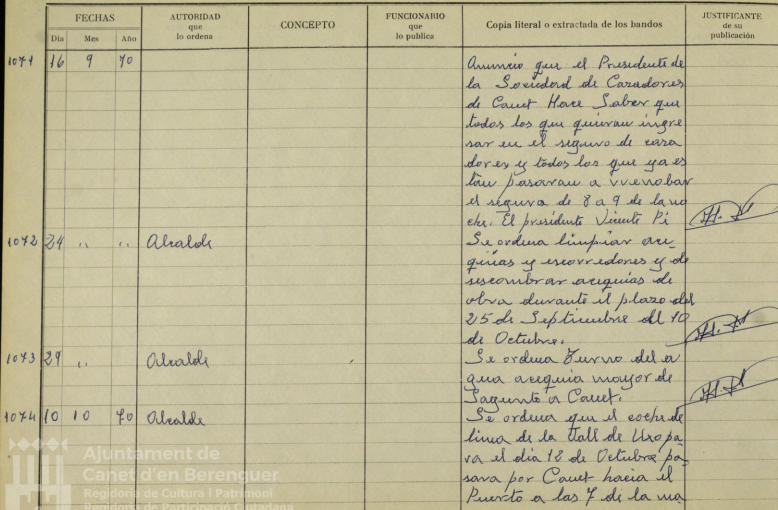 FECHAS
AUTORIDAD
que
lo ordena
CONCEPTO
FUNCIONARIO
que
lo publica
Copia literal o extractada de los bandos
JUSTIFICANTE
de su
publicación
Día Mes Año
1071 16 9 70 Anuncio que el Presidente de
la Sociedad de Cazadores
de Canet Hace Saber que
todos los que quieran ingre
sar en el seguro de caza
dores y todos los que ya es
tan pasaran a
el seguro de 8 a 9 de la no
che. El presidente Vicente Pi
1072 24 " " Alcalde Se ordena limpiar ace-
quias y escorredores y de
sescombrar acequias de
obra durante el plazo del
25 de Septiembre al 10
de Octubre.
1073 29 " Alcalde Se ordena Turno del a
gua acequia mayor de
Sagunto a Canet.
1074 10 10 70 Alcalde Se ordena que el coche de
linia de la Vall de Uxo pa
ra el dia 18 de Octubre pa
sara por Canet hacia el
Puerto a las 7 de la ma
Ajuntament de
Canet d'en Berenguer
Regidoria de Cultura i Patrimoni
Regidoria de Participació Ciutadana